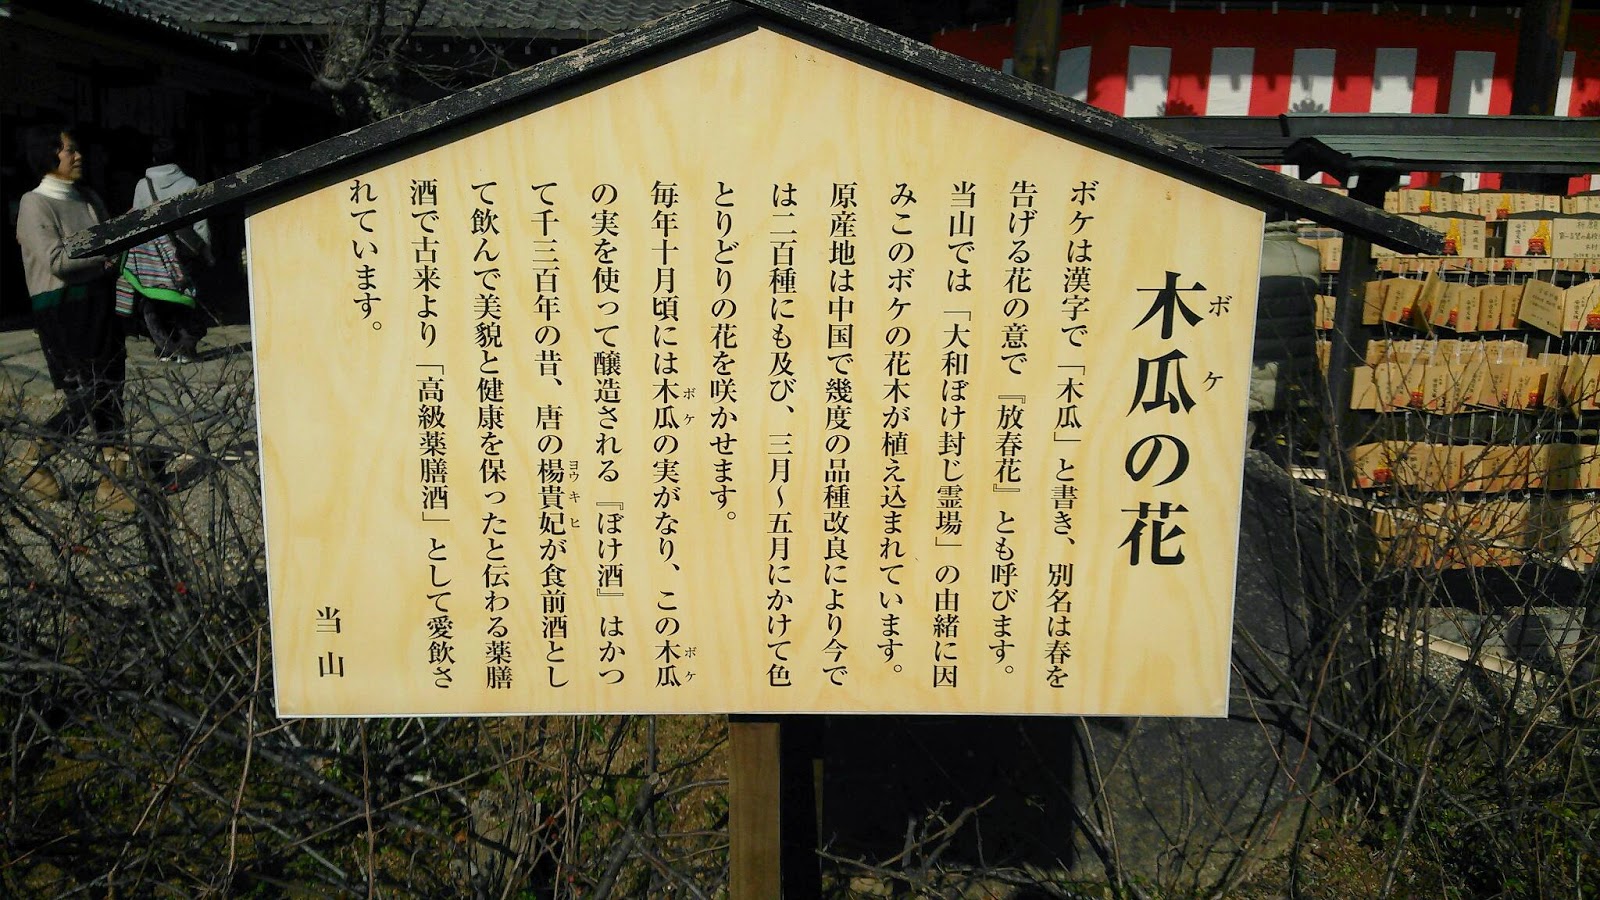 木瓜の花
ボケ
ボケは漢字で「木瓜」と書き、別名は春を
告げる花の意で『放春花』とも呼びます。
当山では「大和ぼけ封じ霊場」の由緒に因
みこのボケの花木が植え込まれています。
原産地は中国で幾度の品種改良により今で
は二百種にも及び、三月〜五月にかけて色
とりどりの花を咲かせます。
毎年十月頃には木瓜の実がなり、この木瓜
ボケ
ボケ
の実を使って醸造される『ぼけ酒』はかつ
て千三百年の昔、唐の楊貴妃が食前酒とし
ヨウキヒ
て飲んで美貌と健康を保ったと伝わる薬膳
酒で古来より「高級薬膳酒」として愛飲さ
れています。
当山